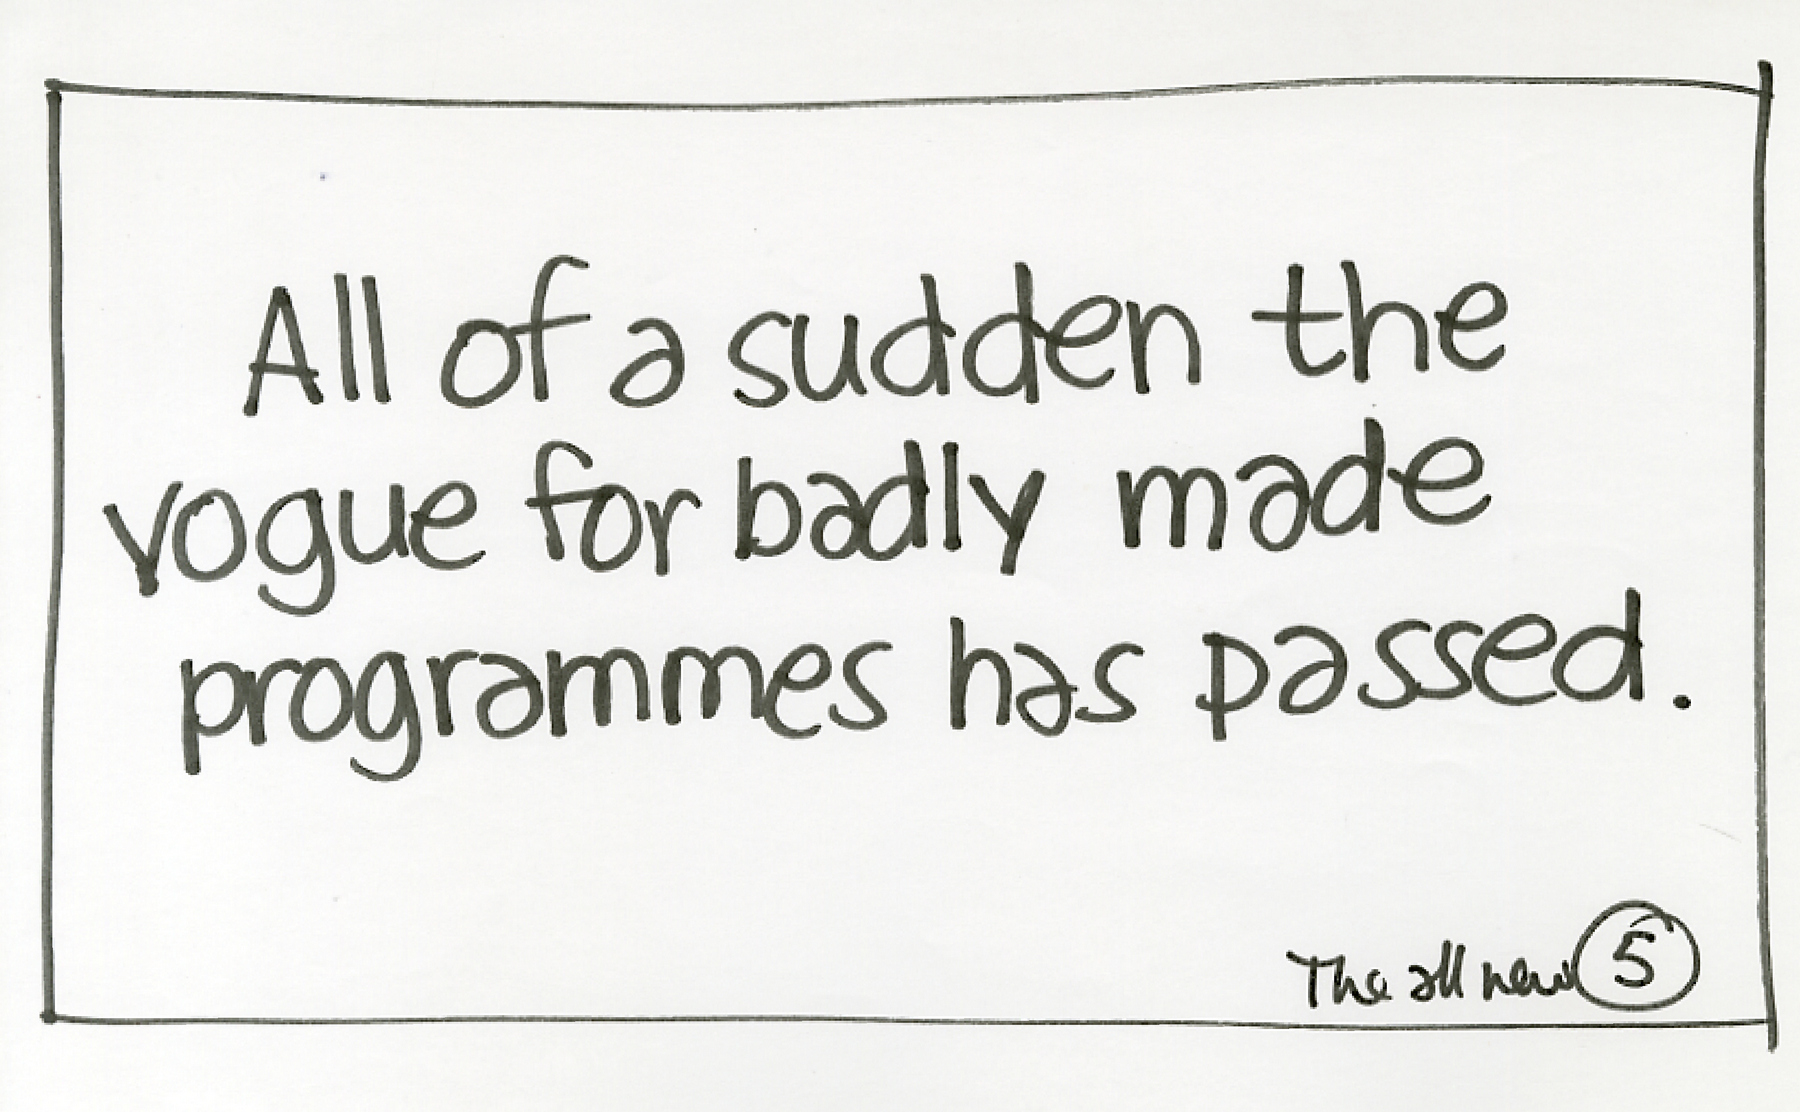 All of a sudden the
vogue for badly made
programmes has passed.
The all new 5